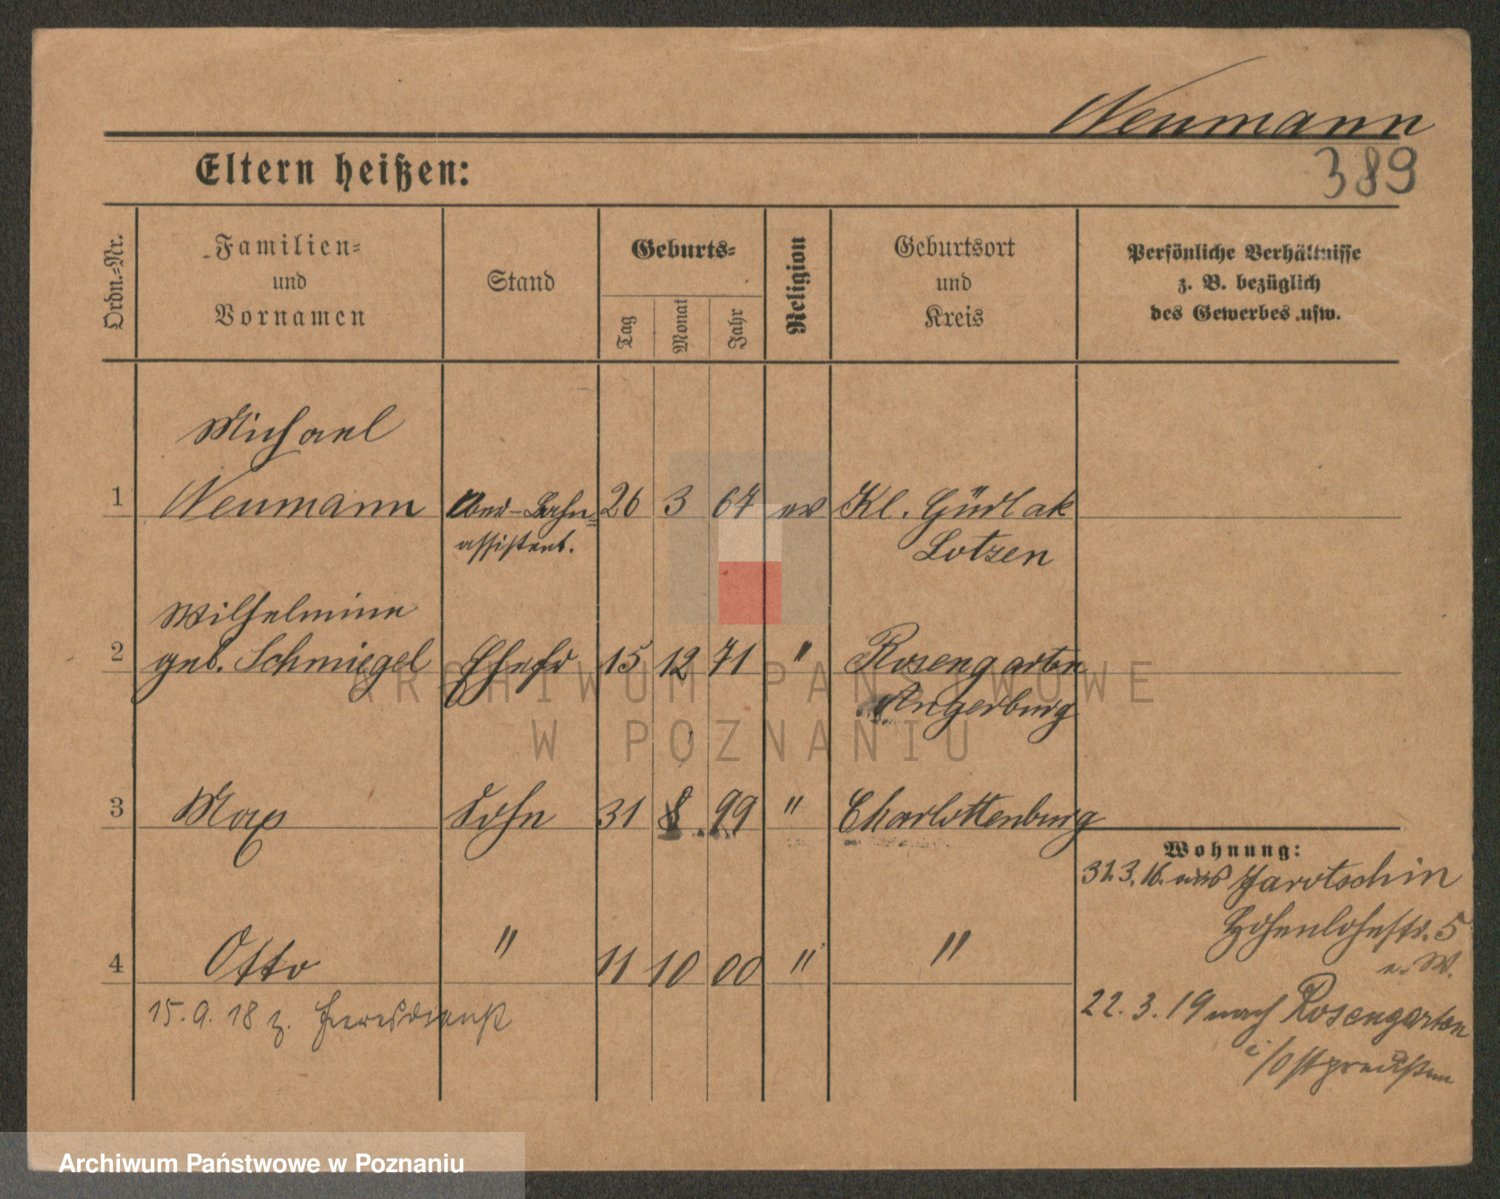 Neumann
389
Eltern heißen:
Ordn.-Nr.
Familien-
und
Vornamen
Stand
Geburts-
Tag
Monat
Jahr
Religion
Geburtsort
und
Kreis
Persönliche Verhältnisse
z. B. bezüglich
des Gewerbes usw.
Michael
1 Neumann Ober-Bahn= 26 3 67 ev Kl. Gürlak
assistent. Lotzen
Wilhelmine
2 geb. Schmiegel Ehefr 15 12 71 " Rosengarten
Angerburg
3 Max Sohn 31 8. 99 " Charlottenburg
Wohnung:
31.3.16. aus Jarotschin
Hohenlohestr. 5
b. W.
4 Otto " 11 10 00 " "
15.9.18 z. Heeresdienst
22.3.19 nach Rosengarten
i/Ostpreußen
ARCHIWUM PAŃSTWOWE
W POZNANIU
Archiwum Państwowe w Poznaniu